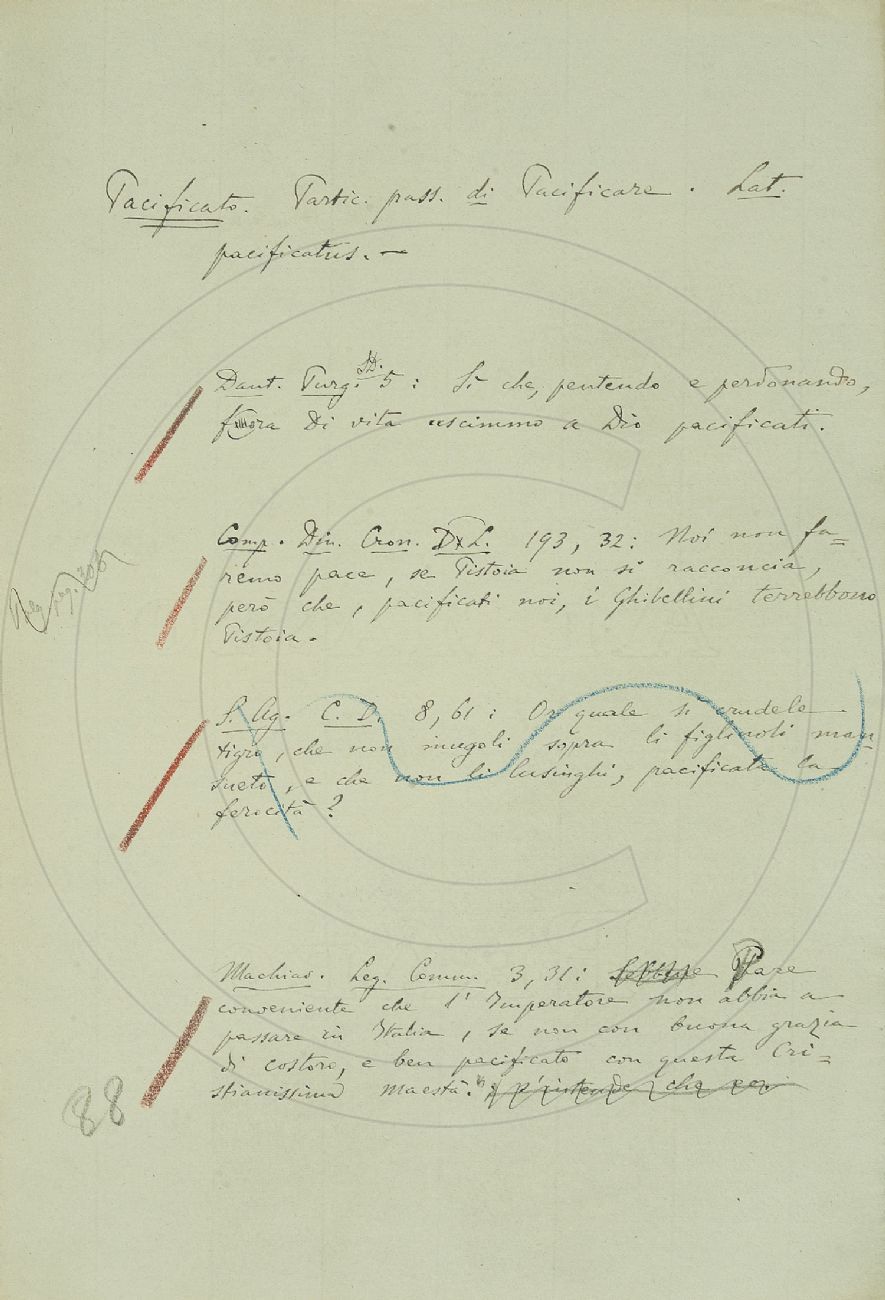 Pacificato. Partic. pass. di Pacificare. Lat.
pacificatus. —
Dant. Purg. 5: Sì che, pentendo e perdonando,
fora di vita uscimmo a Dio pacificati.
Comp. Din. Cron. D. L. 193, 32: Noi non fa=
remo pace, se Pistoia non si racconcia,
però che, pacificati noi, i Ghibellini terrebbono
Pistoia.
S. Ag. C. D. 8, 61: Or quale sì crudele
tigra, che non mugoli sopra li figliuoli man
sueto, e che non li lusinghi, pacificata la
ferocità?
Machiav. Leg. Comm. 3, 31: Pare
conveniente che l'Imperatore non abbia a
passare in Italia, se non con buona grazia
di costoro, e ben pacificato con questa Cri=
stianissima maestà.
88